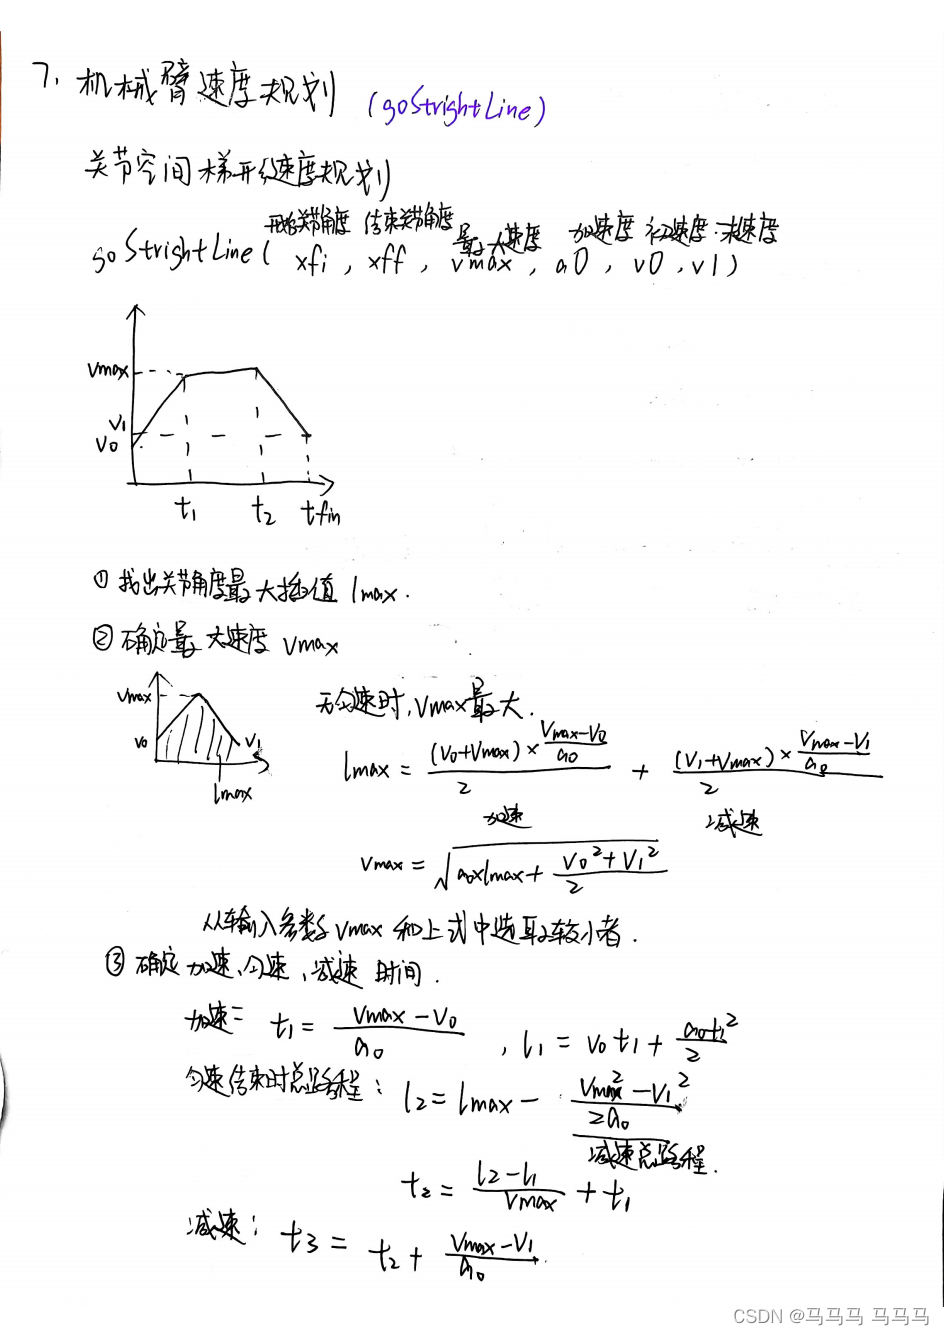 7. 机械臂速度规划 (goStrightLine)
关节空间梯形速度规划
开始关节角度 结束关节角度 最大速度 加速度 初速度 末速度
goStrightLine( xfi, xff, vmax, a0, v0, v1)
vmax
v1
v0
t1 t2 tfin
① 找出关节角度最大插值 lmax.
② 确定最大速度 vmax
vmax
v0 v1
lmax
无匀速时, vmax最大.
lmax = (v0+vmax)×(vmax-v0)/a0 / 2 + (v1+vmax)×(vmax-v1)/a0 / 2
加速 减速
vmax = √(a0×lmax + (v0²+v1²)/2)
从输入参数 vmax 和上式中选取较小者.
③ 确定加速、匀速、减速时间.
加速: t1 = (vmax-v0)/a0, l1 = v0t1 + a0t1²/2
匀速结束时总路程: l2 = lmax - (vmax²-v1²)/2a0
减速总路程.
t2 = (l2-l1)/vmax + t1
减速: t3 = t2 + (vmax-v1)/a0
CSDN @马马马 马马马